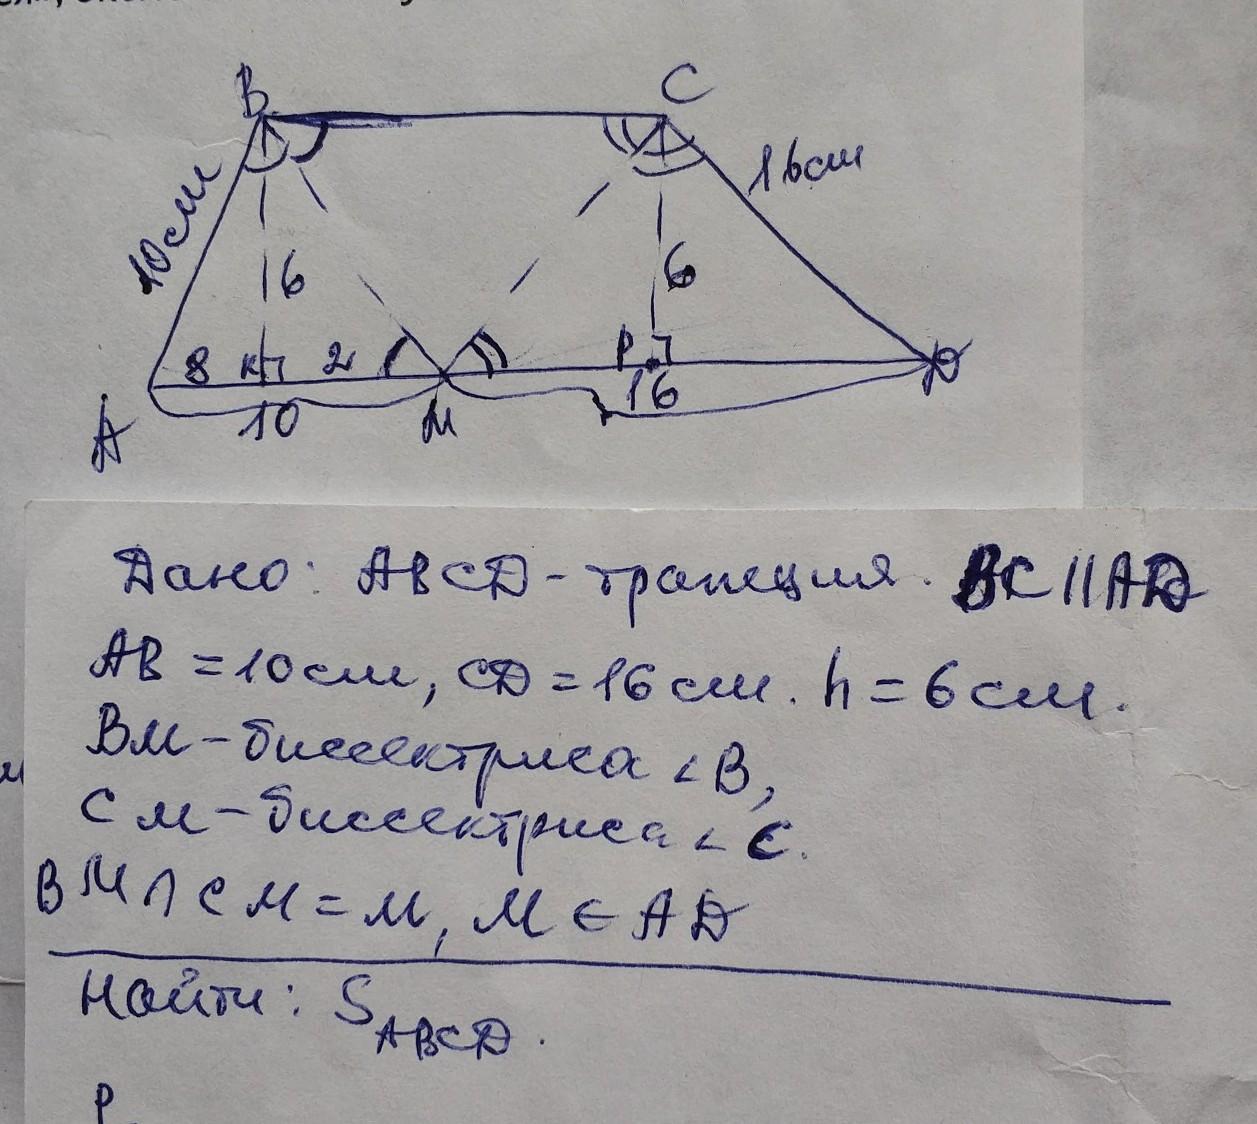 B
C
10см
16см
6
6
8
К
2
Р
D
A
10
М
16
Дано: ABCD - трапеция. BC||AD
AB = 10см, CD = 16 см. h = 6 см.
ВМ - биссектриса <B,
СМ - биссектриса < C.
ВМ ∩ СМ = М, М ∈ AD
Найти: S ABCD.